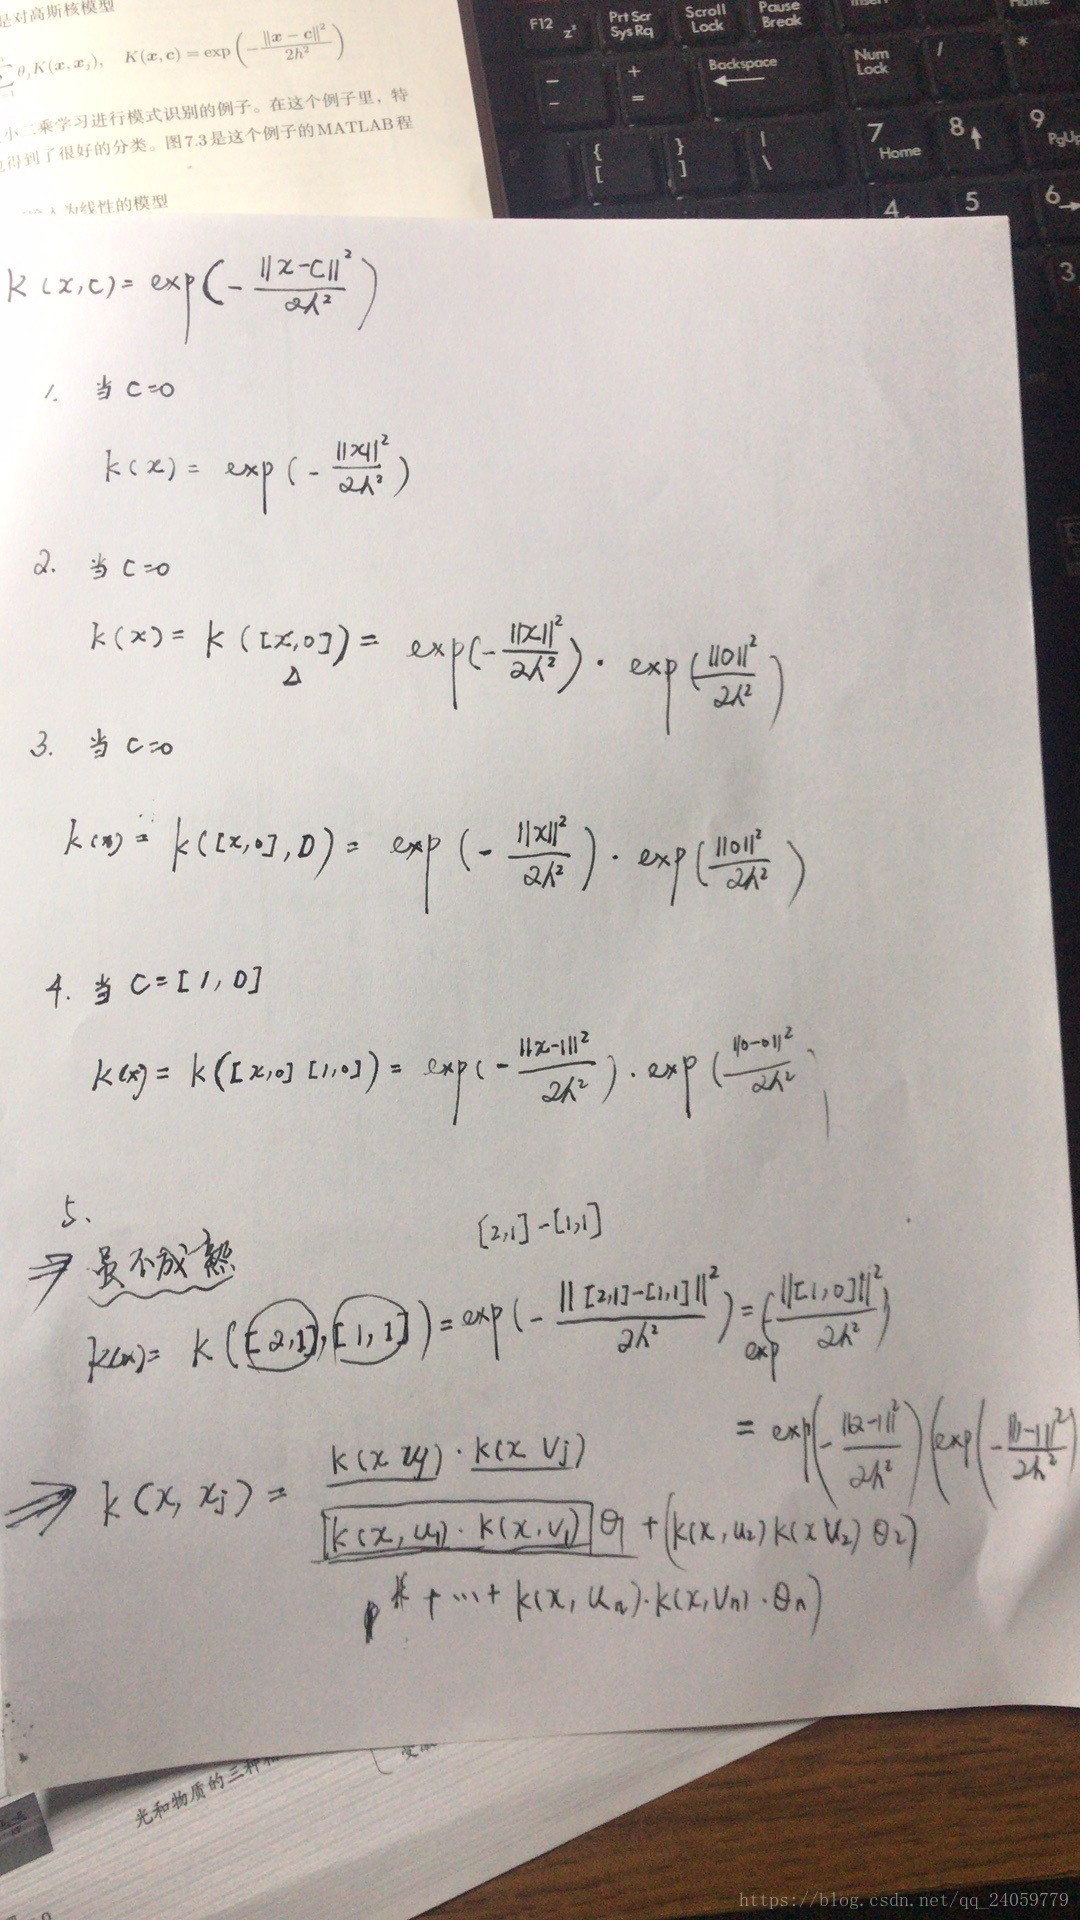 是对高斯核模型
θ_j K(x, x_j),   K(x, c) = exp(-||x - c||²/2h²)
小二乘学习进行模式识别的例子。在这个例子里，特
得到了很好的分类。图7.3是这个例子的MATLAB程
为线性的模型
F12 z² Prt Scr Sys Rq Scroll Lock Pause Break Insert Home
- - + = Backspace Num Lock / *
{ [ } ] | \ 7 Home 8 9 PgUp
4 5 6
3
k(x,c) = exp(-||x-c||²/2h²)
1. 当 c=0
k(x) = exp(-||x||²/2h²)
2. 当 c=0
k(x) = k([x,0]) = exp(-||x||²/2h²) · exp(||0||²/2h²)
3. 当 c=0
k(x) = k([x,0],0) = exp(-||x||²/2h²) · exp(||0||²/2h²)
4. 当 c=[1,0]
k(x) = k([x,0] [1,0]) = exp(-||x-1||²/2h²) · exp(||0-0||²/2h²
5.
[2,1]-[1,1]
⇒ 虽不成熟
k(x) = k([2,1],[1,1]) = exp(-||[2,1]-[1,1]||²/2h²) = exp(-||[1,0]||²/2h²)
= exp(-||2-1||²/2h²)(exp(-||1-1||²/2h²
⇒ k(x, x_j) = k(x u_j) · k(x v_j)
[k(x,u₁)·k(x,v₁)]θ₁ + (k(x,u₂)k(x v₂)θ₂)
+ ... + k(x,u_n)·k(x,v_n)·θ_n)
光和物质的三种
https://blog.csdn.net/qq_24059779